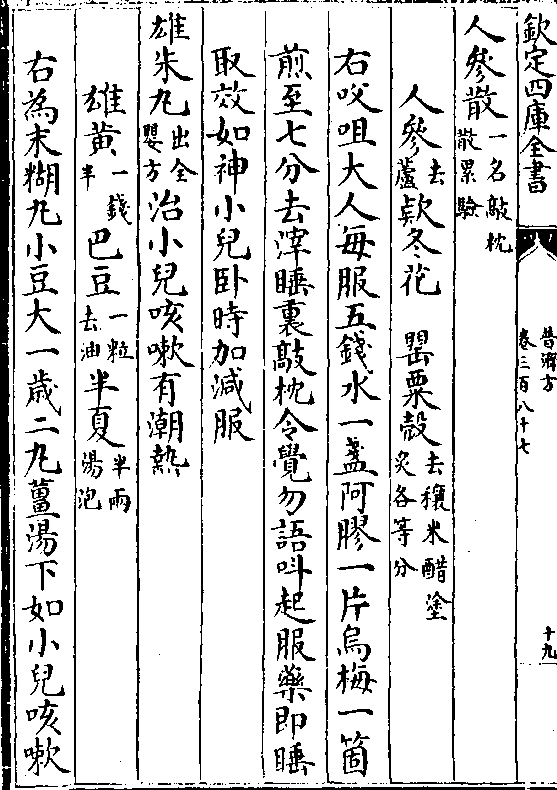 欽定四庫全書
普濟方
卷三百八十七
十九
人參散一名敲枕散累驗
人參去蘆款冬花 罌粟殼去穰米醋塗炙各等分
右㕮咀大人每服五錢水一盞阿膠一片烏梅一箇
煎至七分去滓睡裏敲枕令覺勿語呌起服藥即睡
取效如神小兒卧時加減服
雄朱丸出全嬰方治小兒咳嗽有潮熱
雄黄一錢半巴豆一粒去油半夏半兩湯泡
右為末糊丸小豆大一歲二丸薑湯下如小兒咳嗽